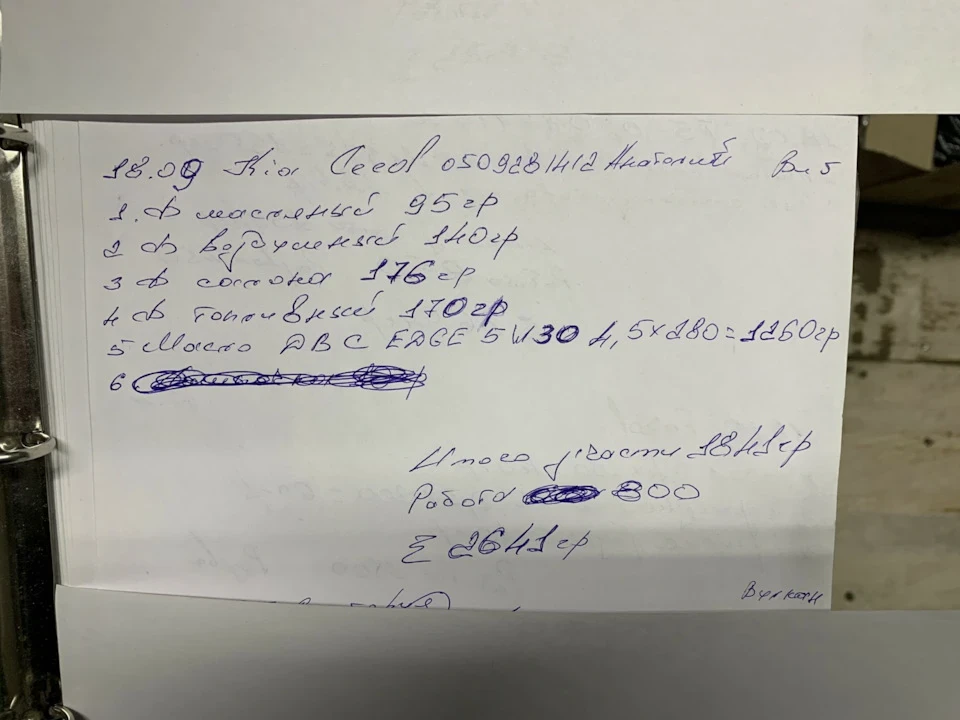 18.09 Kia Ceed 0509281412 Анатолий
1. Ф масляный 95гр
2 Ф воздушный 140гр
3 Ф салона 176гр
4 Ф топливный 170гр
5 Масло DBC EDGE 5W30 4,5×280=1260гр
6
Итого з/части 1841гр
Робота 800
Σ 2641гр